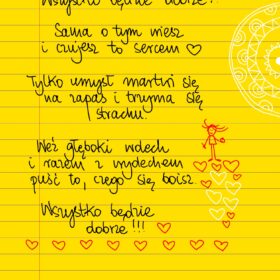 Wszystko będzie dobrze!!
Sama o tym wiesz
i czujesz to sercem ♡
Tylko umysł martwi się
na zapas i trzyma się
strachu.
Weź głęboki wdech
i razem z wydechem
puść to, czego się boisz.
Wszystko będzie
dobrze!!!